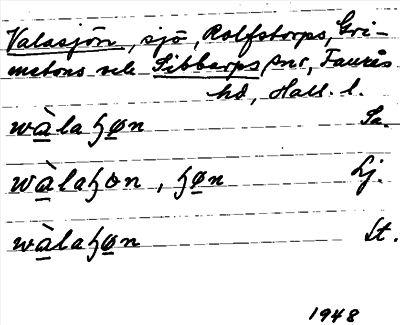 Valasjön, sjö, Rolfstorps, Gri-
metons och Sibbarps snr, Faurås
hd, Hall. l.
wàlaꜧøn Sa.
wàlaꜧon, ꜧøn Lj.
wàlaꜧøn St.
1948